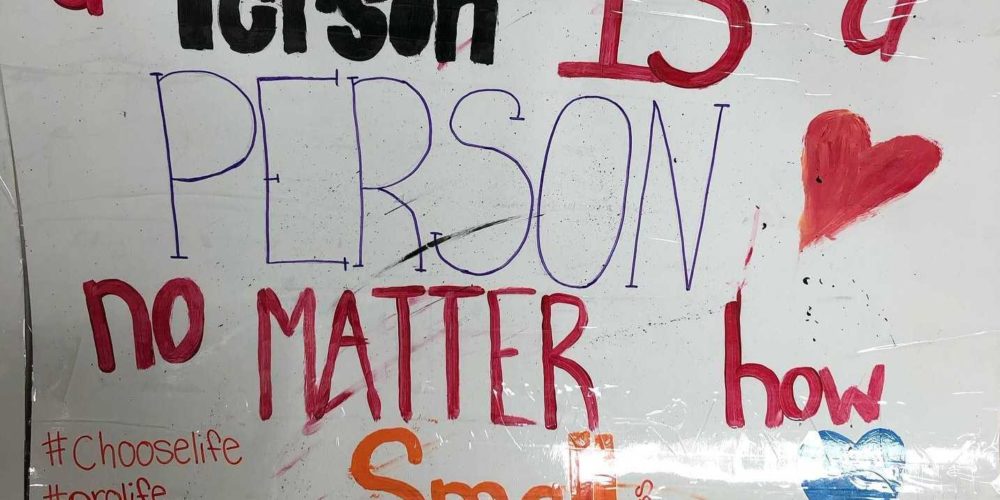 a Person IS a
PERSON
no MATTER how
#Chooselife Small
#prolife